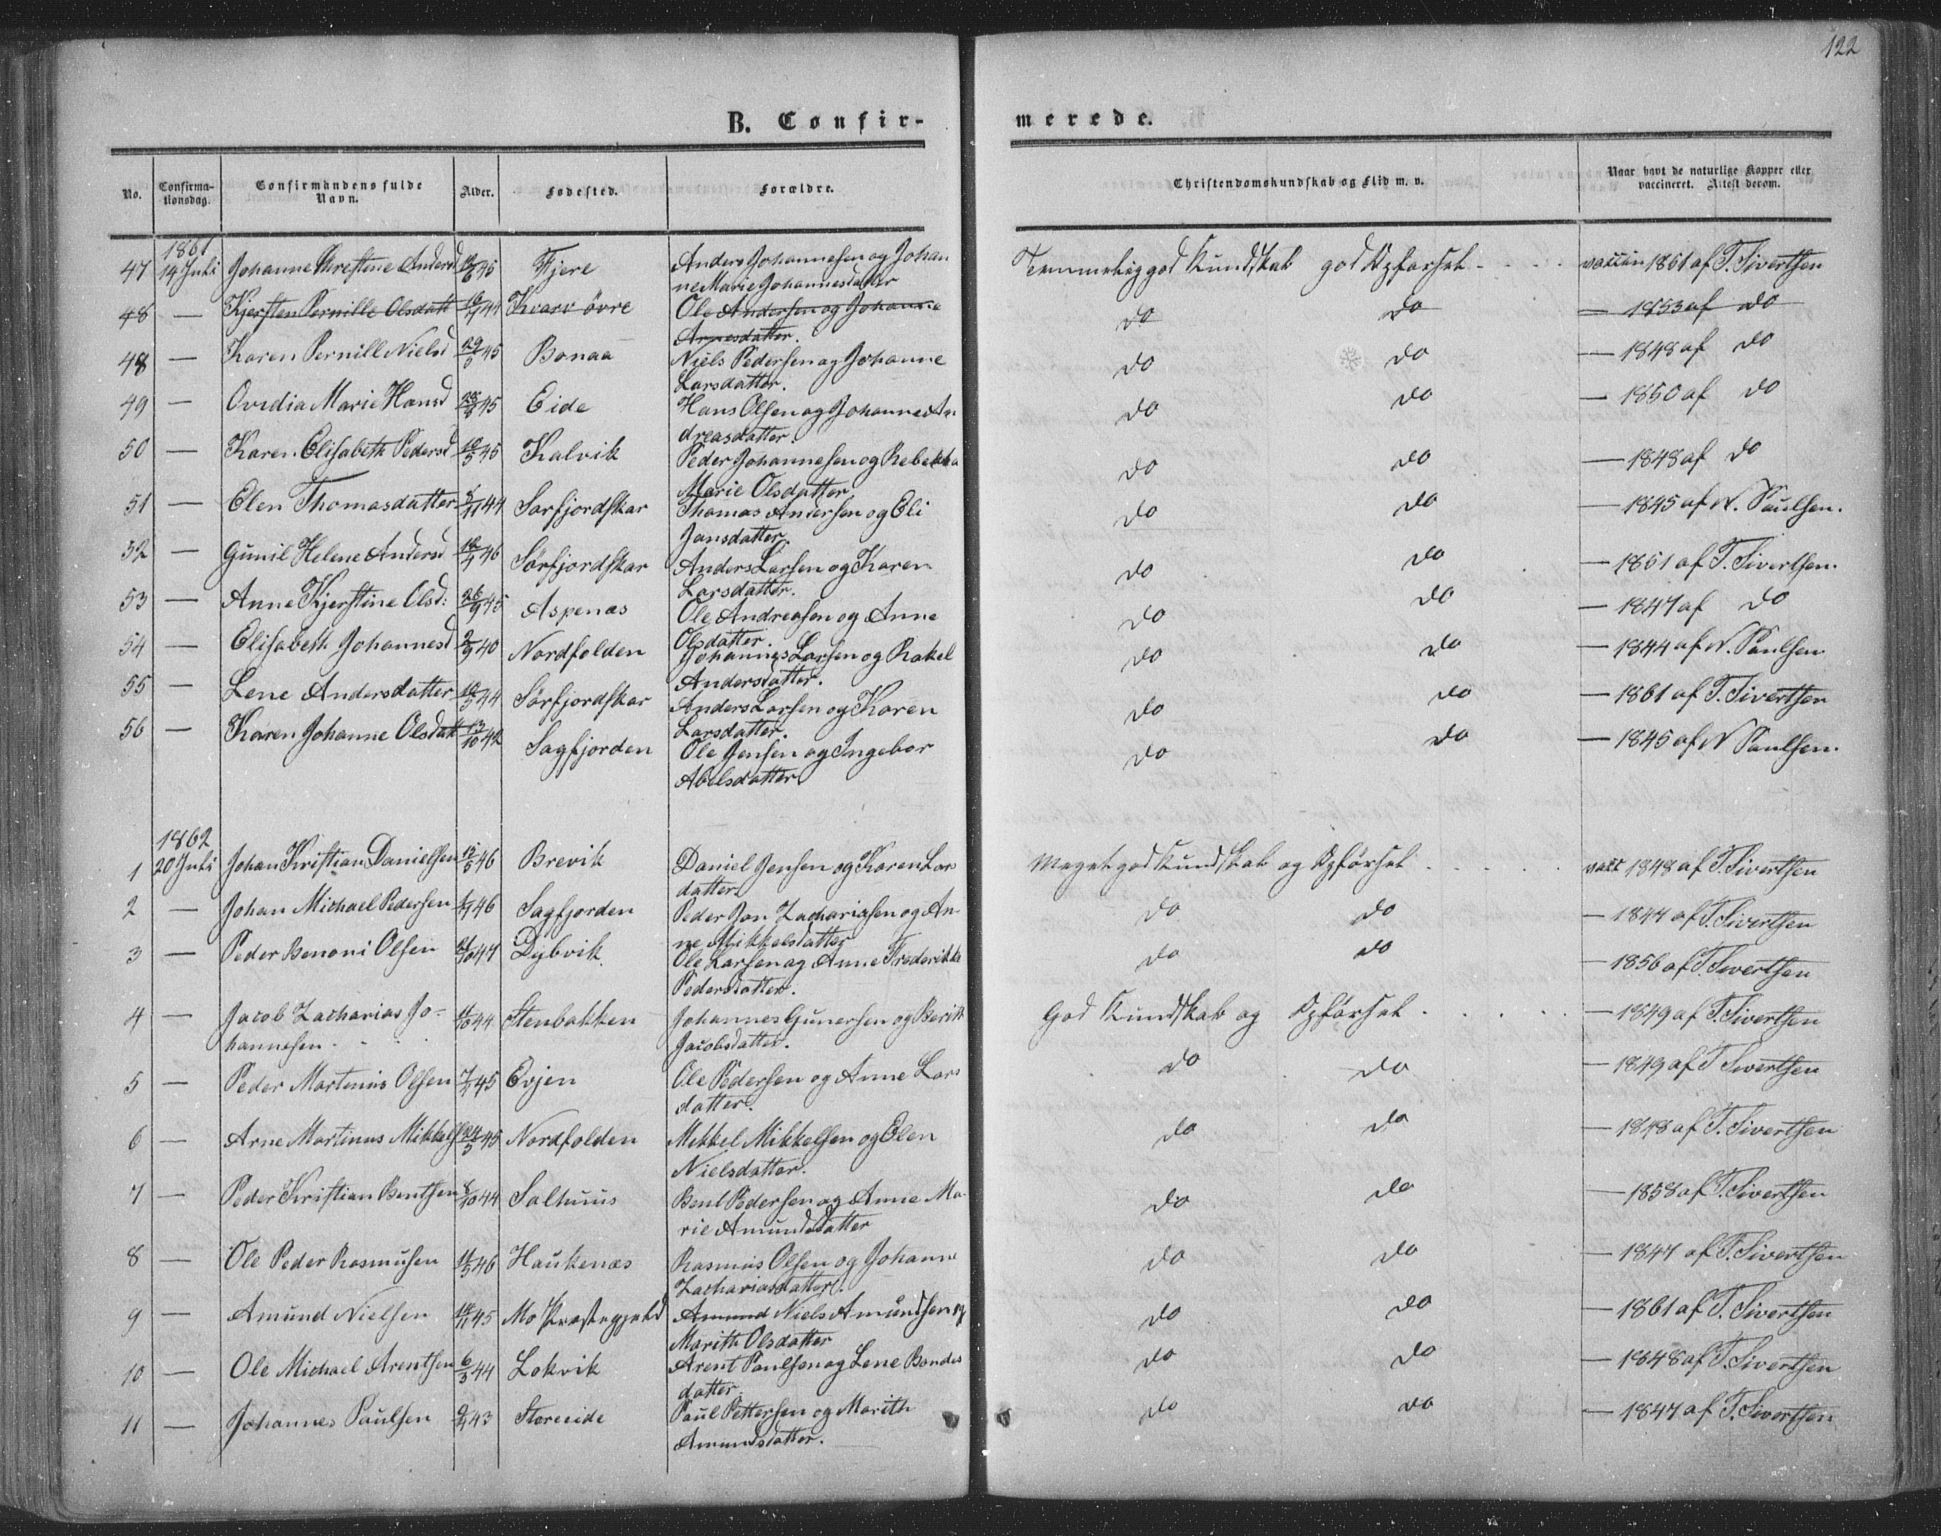 122
B. Confir- merede.
No. Confirma-tionsdag. Confirmandens fulde Navn. Alder. Fødested. Forældre. Christendomskundskab og Flid m. v. Naar havt de naturlige Kopper eller vaccineret. Attest derom.
1861
47 14 Juli Johanne Krestine Andersd 45 Fjere Anders Johannesen og Johan Temmelig god Kundskab god Opførsel vaccin 1861 af T. Sivertsen
ne Marie Johannesdatter
48 — Kjersten Pernille Olsdatt 44 Kvarv övre Ole Andersen og Johanne do do — 1853 af do
Arnesdatter.
48 — Karen Pernille Nielsd 29/5 45 Bonaa Niels Pedersen og Johanne do do — 1848 af do
Larsdatter.
49 — Ovidia Marie Hansd 45 Eide Hans Olsen og Johanne An do do — 1850 af do
dreasdatter.
50 — Karen Elisabeth Pedersd 45 Kalvik Peder Johannesen og Rebekka do do — 1848 af do
Marie Olsdatter.
51 — Elen Thomasdatter 44 Sørfjordskar Thomas Andersen og Eli do do — 1845 af N. Paulsen.
Jansdatter.
52 — Gunil Helene Andersd 46 Sørfjordskar Anders Larsen og Karen do do — 1861 af T. Sivertsen.
Larsdatter.
53 — Anne Kjerstine Olsd: 26/9 45 Aspenæs Ole Andreasen og Anne do do — 1847 af do
Olsdatter.
54 — Elisabeth Johannesd 2/9 40 Nordfolden Johannes Larsen og Rakel do do — 1844 af N. Paulsen
Andersdatter.
55 — Lene Andersdatter 44 Sørfjordskar Anders Larsen og Karen do do — 1861 af T. Sivertsen
Larsdatter.
56 — Karen Johanne Olsdatt 13/10 42 Sagfjorden Ole Jensen og Ingebor do do — 1845 af N Paulsen.
Abelsdatter
1862
1 20 Juli Johan Kristian Danielsen 15/5 46 Brevik Daniel Jensen og Karen Lars Meget god Kundskab og Opførsel vacc 1848 af T. Sivertsen
datter
2 — Johan Michael Pedersen 46 Sagfjorden Peder Jan Zachariasen og An- do do — 1847 af T. Sivertsen
ne Mikkelsdatter
3 — Peder Benoni Olsen 47 Dybvik Ole Larsen og Anne Frederikke do do — 1856 af T. Sivertsen
Pedersdatter.
4 — Jacob Zacharias Jo- 44 Stenbakken Johannes Gunersen og Berith God Kundskab og Opførsel — 1849 af T. Sivertsen
hannesen Jacobsdatter.
5 — Peder Martinus Olsen 45 Evjen Ole Pedersen og Anne Lars do do — 1849 af T Sivertsen
datter.
6 — Arne Martinus Mikkels 24/5 45 Nordfolden Mekkel Mikkelsen og Elen do do — 1848 af T. Sivertsen
Nielsdatter.
7 — Peder Kristian Bentsen 8/10 44 Salhuus Bent Pedersen og Anne Ma- do do — 1858 af T. Sivertsen
rie Amundsdatter
8 — Ole Peder Rasmusen 46 Haukenæs Rasmus Olsen og Johanne do do — 1847 af T. Sivertsen
Zachariasdatter.
9 — Amund Nielsen 45 Mo Præstegjeld Amund Niels Amundsen og do do — 1861 af T. Sivertsen
Marith Olsdatter
10 — Ole Michael Arentsen 6/3 44 Lokvik Arent Paulsen og Lene Bendes do do — 1848 af T. Sivertsen
datter.
11 — Johannes Paulsen 43 Storeide Paul Pettersen og Marith do do — 1847 af T. Sivertsen
Amundsdatter.